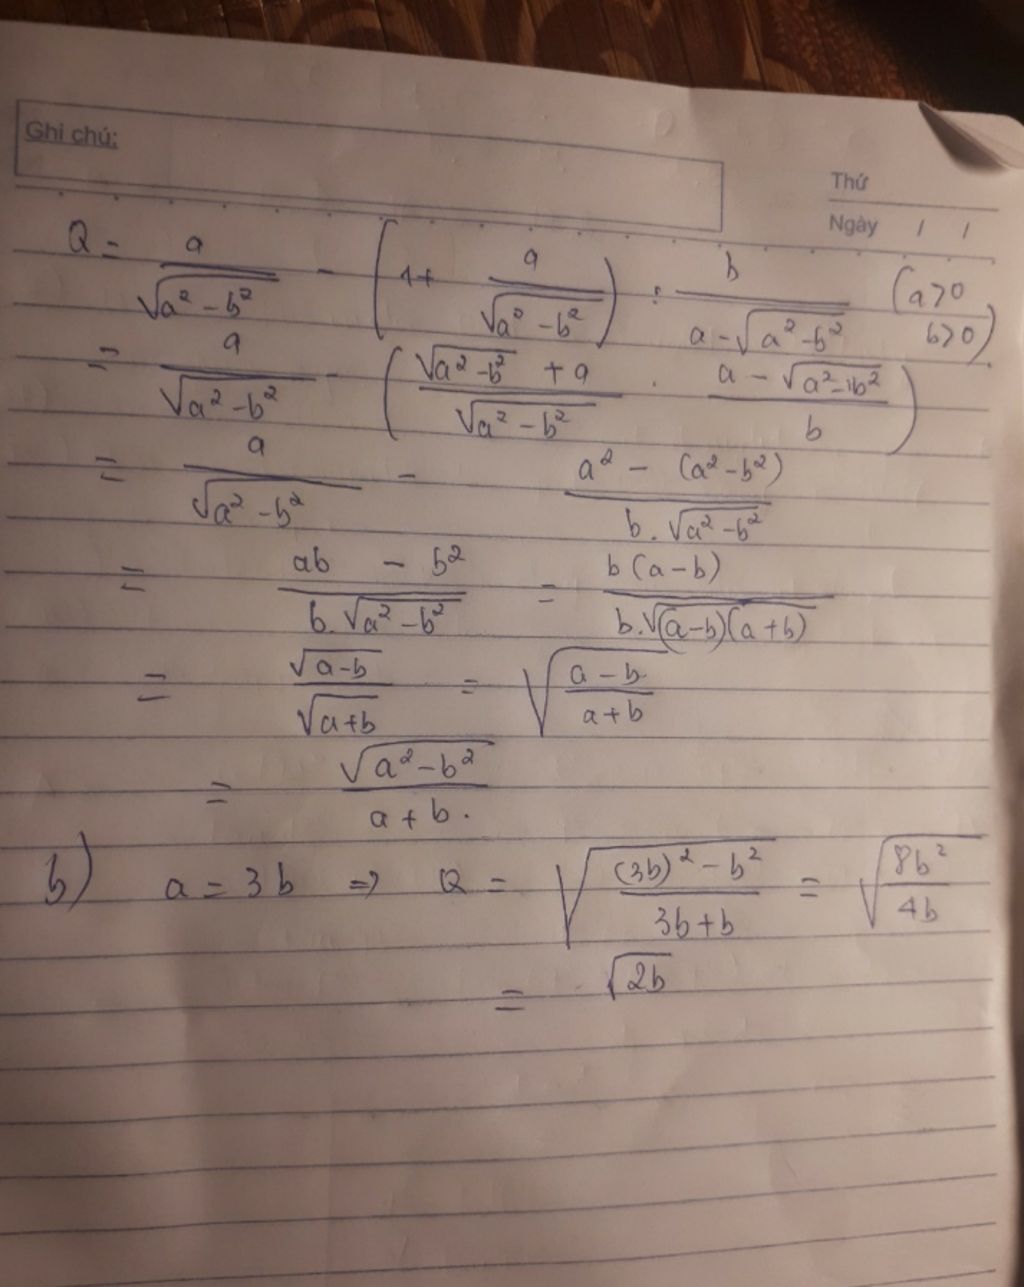 Ghi chú:
Thứ
Ngày / /
Q = a/√(a² - b²) - (1 + a/√(a² - b²)) : b/(a - √(a² - b²)) (a>0 b>0)
= a/√(a² - b²) - ((√(a² - b²) + a)/√(a² - b²) . (a - √(a² - b²))/b)
= a/√(a² - b²) - (a² - (a² - b²))/(b . √(a² - b²))
= (ab - b²)/(b . √(a² - b²)) = b(a - b)/(b . √((a - b)(a + b)))
= √(a - b)/√(a + b) = √((a - b)/(a + b))
= √(a² - b²)/(a + b).
b) a = 3b => Q = √(((3b)² - b²)/(3b + b)) = √(8b²/4b)
= √(2b)